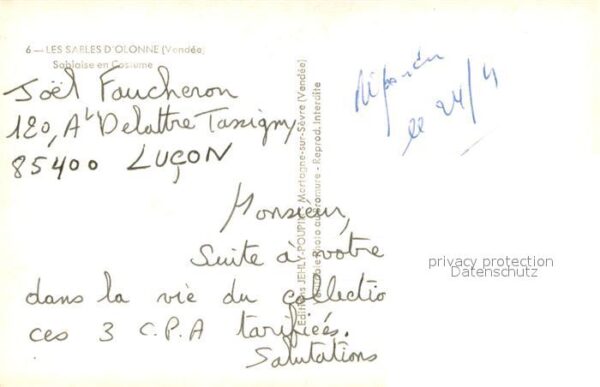 6 — LES SABLES D'OLONNE (Vendée)
Sablaise en Costume
Joël Faucheron
120, Av Delattre Tassigny
85400 LUÇON
Répondu
le 24/4
Monsieur,
Suite à votre
dans la vie du collectio
ces 3 C.P.A tarifiées.
Salutations
Editions JEHLY-POUPIN, Mortagne-sur-Sèvre (Vendée)
Véritable Photo au Bromure - Reprod. Interdite
privacy protection
Datenschutz